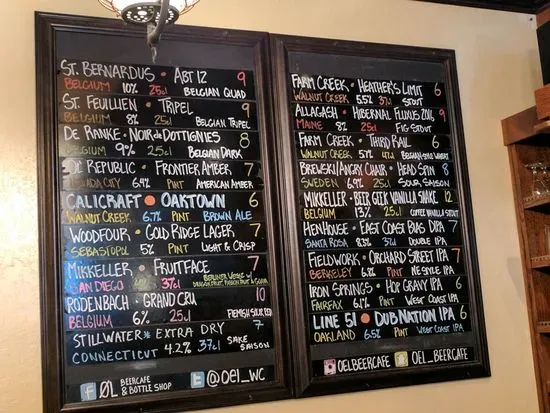 ST. BERNARDUS • ABT 12 9
BELGIUM 10% 25cl BELGIAN QUAD
ST. FEUILLIEN • TRIPEL 9
BELGIUM 8% 25cl BELGIAN TRIPEL
DE RANKE • NOIR DE DOTTIGNIES 8
BELGIUM 9% 25cl BELGIAN DARK
OL' REPUBLIC • FRONTIER AMBER 7
NEVADA CITY 6.4% PINT AMERICAN AMBER
CALICRAFT • OAKTOWN 6
WALNUT CREEK 6.7% PINT BROWN ALE
WOODFOUR • GOLD RIDGE LAGER 7
SEBASTOPOL 5% PINT LIGHT & CRISP
MIKKELLER • FRUITFACE 7
SAN DIEGO 37cl BERLINER WEISSE W/ DRAGON FRUIT, PASSION FRUIT & GUAVA
RODENBACH • GRAND CRU 10
BELGIUM 6% 25cl FLEMISH SOUR RED
STILLWATER • EXTRA DRY 7
CONNECTICUT 4.2% 37cl SAKE SAISON
ØL BEERCAFE & BOTTLE SHOP @OEL_WC
FARM CREEK • HEATHER'S LIMIT 6
WALNUT CREEK 5.5% 37cl STOUT
ALLAGASH • HIBERNAL FLUXUS 2016 9
MAINE 8% 25cl FIG STOUT
FARM CREEK • THIRD RAIL 6
WALNUT CREEK 5.7% BELGIAN-STYLE WHEAT
BREWSKI/ANGRY CHAIR • HEAD SPIN 8
SWEDEN 6.9% 25cl SOUR SAISON
MIKKELLER • BEER GEEK VANILLA SHAKE 12
BELGIUM 13% 25cl COFFEE VANILLA STOUT
HENHOUSE • EAST COAST BIAS DIPA 7
SANTA ROSA 8.3% 37cl DOUBLE IPA
FIELDWORK • ORCHARD STREET IPA 7
BERKELEY 6.8% PINT NE STYLE IPA
IRON SPRINGS • HOP GRAVY IPA 6
FAIRFAX 6.1% PINT WEST COAST IPA
LINE 51 • DUB NATION IPA 6
OAKLAND 6.5% PINT WEST COAST IPA
OELBEERCAFE OEL_BEERCAFE